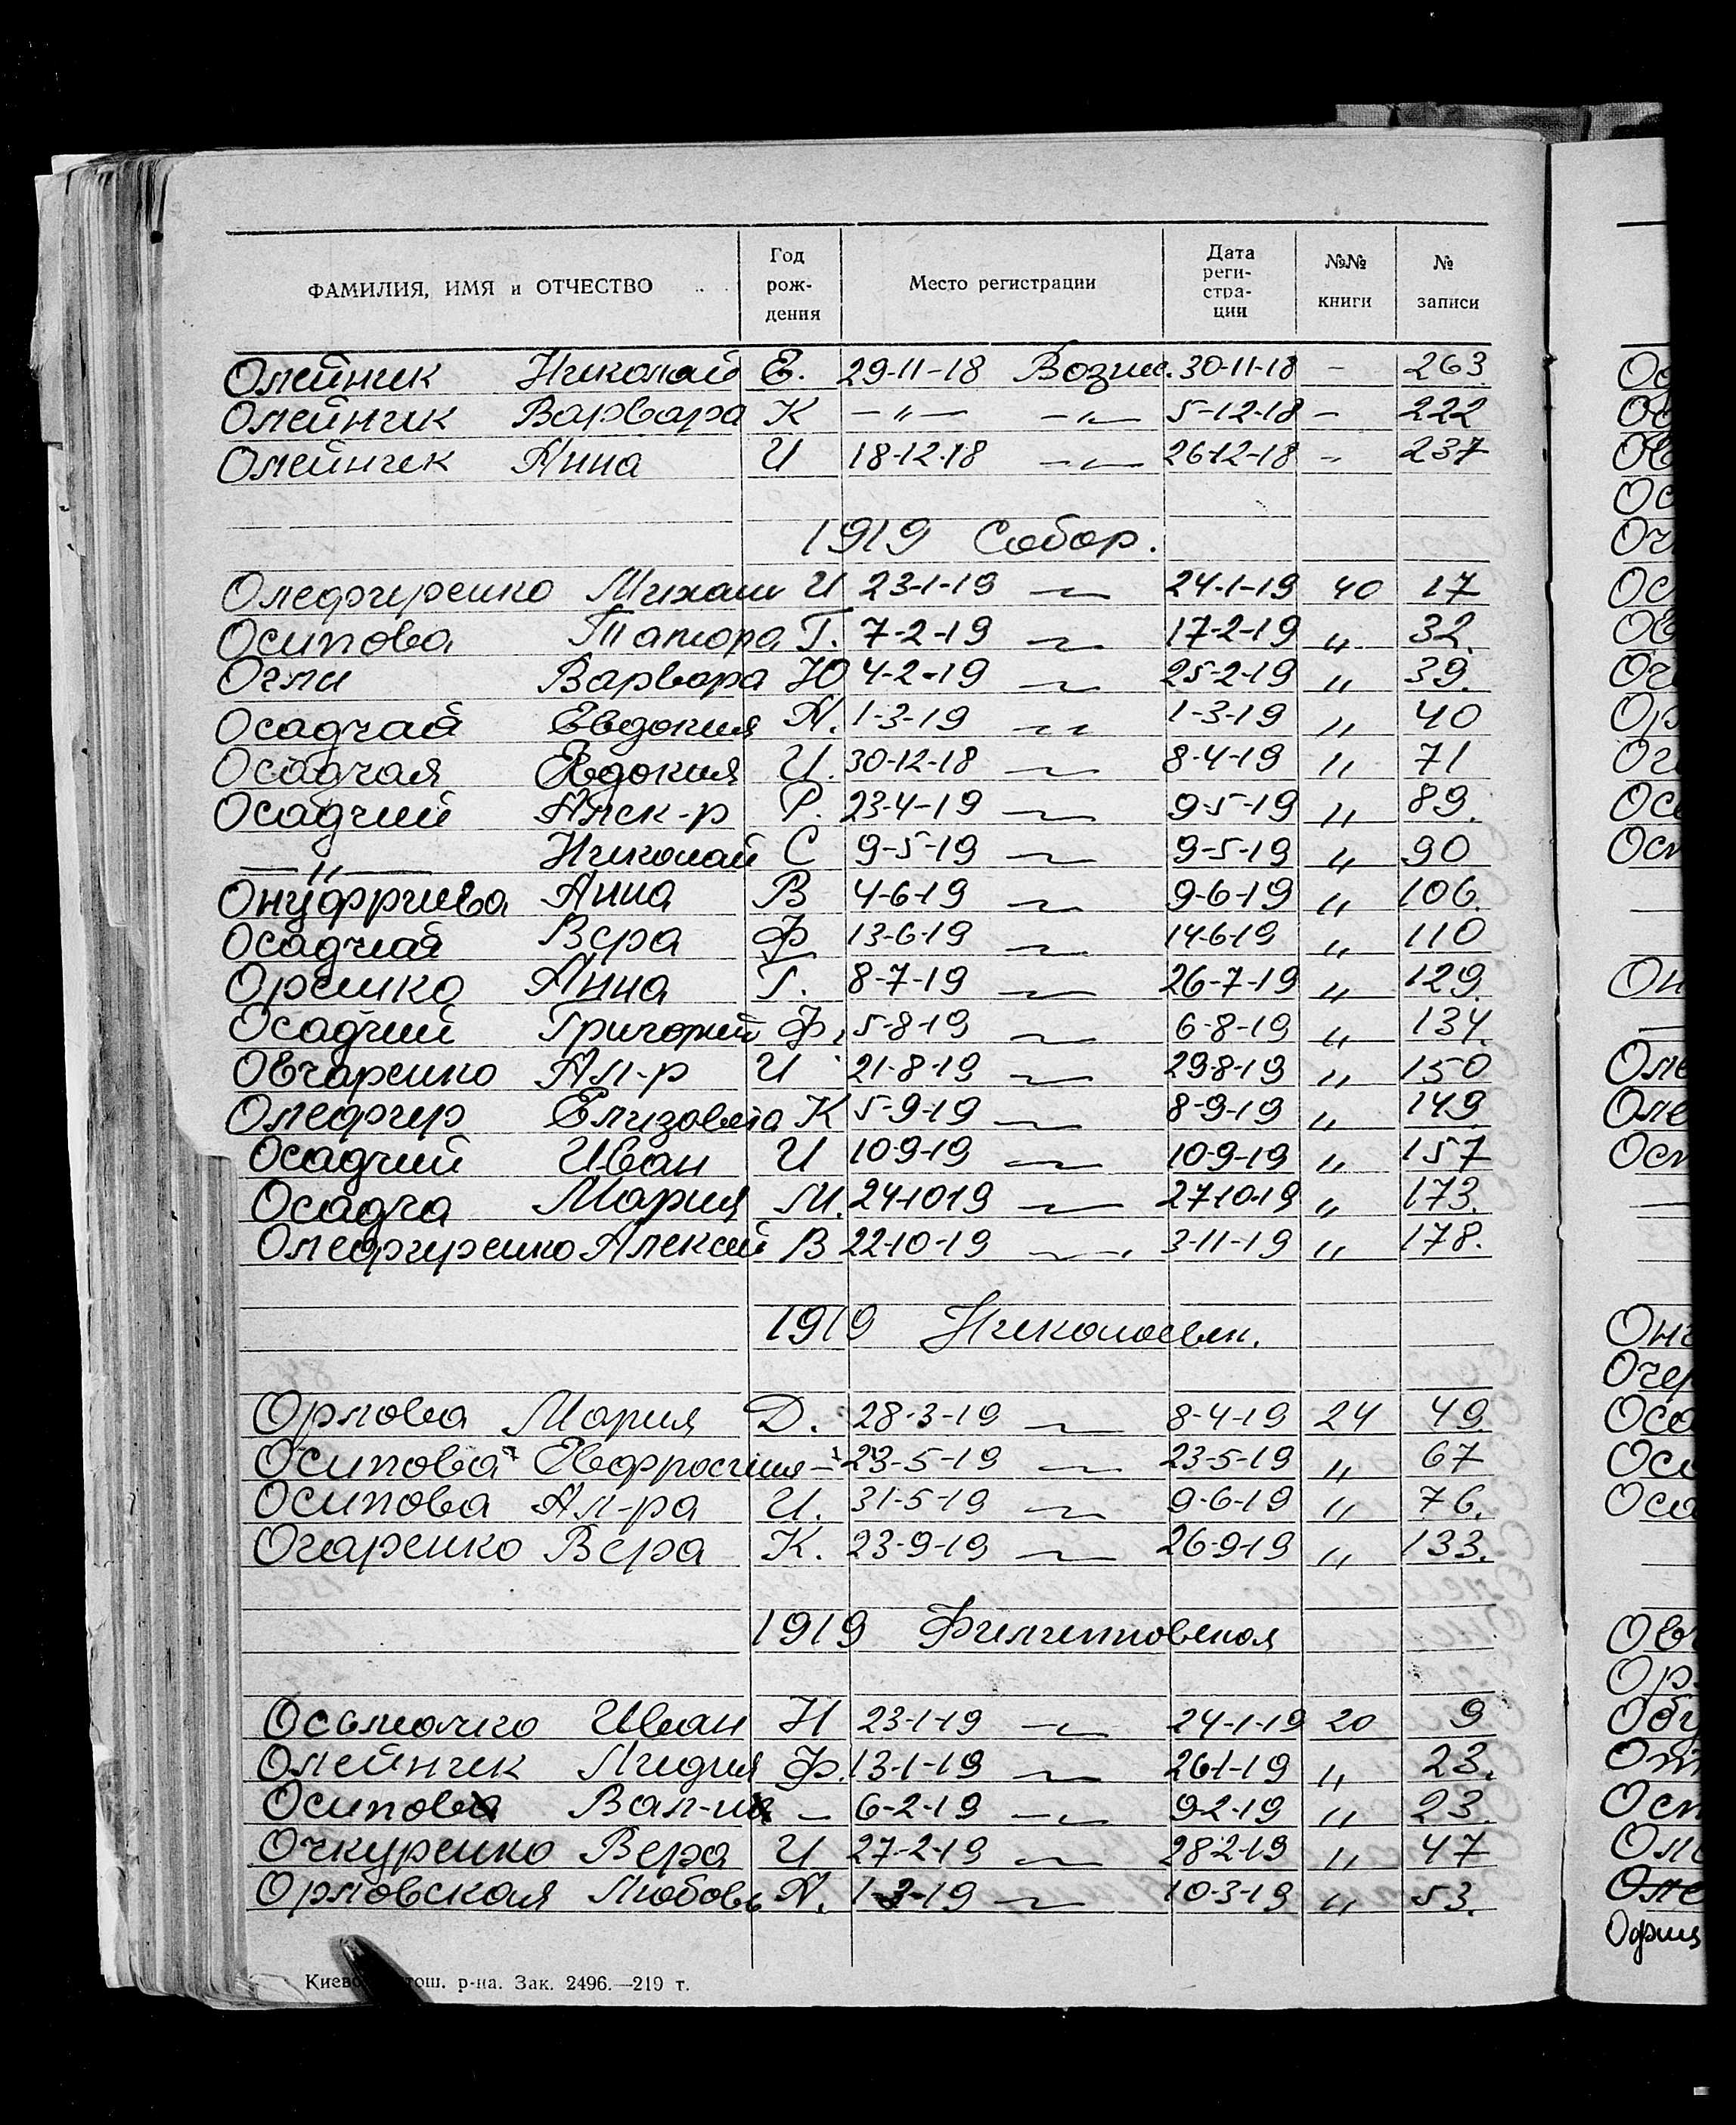 ФАМИЛИЯ, ИМЯ и ОТЧЕСТВО Год рождения Место регистрации Дата регистрации №№ книги № записи
Олейник Николай Е. 29-11-18 Возне. 30-11-18 - 263
Олейник Варвара К -"- -"- 5-12-18 - 222
Олейник Анна И 18-12-18 -"- 26-12-18 - 237
1919 Собор.
Олефиренко Михаил И 23-1-19 -"- 24-1-19 40 17
Осипова Г. 7-2-19 -"- 17-2-19 " 32.
Огли Варвара Ю 4-2-19 -"- 25-2-19 " 39.
Осадчая Евдокия А. 1-3-19 -"- 1-3-19 " 40
Осадчая Евдокия И. 30-12-18 -"- 8-4-19 " 71
Осадчий Алек-р Р. 23-4-19 -"- 9-5-19 " 89.
-"- Николай С 9-5-19 -"- 9-5-19 " 90
Онуфриева Анна В 4-6-19 -"- 9-6-19 " 106.
Осадчая Вера Ф 13-6-19 -"- 14-6-19 " 110
Орешко Анна Г. 8-7-19 -"- 26-7-19 " 129.
Осадчий Григорий Ф. 5-8-19 -"- 6-8-19 " 134.
Овчаренко Ал-р И 21-8-19 -"- 29-8-19 " 150
Олефир Елизавета К 5-9-19 -"- 8-9-19 " 149
Осадчий Иван И 10-9-19 -"- 10-9-19 " 157
Осадча Мария М. 24-10-19 -"- 27-10-19 " 173.
Олефиренко Алексей В 22-10-19 -"- 3-11-19 " 178.
1919 Николаевск.
Орлова Мария Д. 28-3-19 -"- 8-4-19 24 49.
Осипова Евфросиния - 23-5-19 -"- 23-5-19 " 67
Осипова Ал-ра И. 31-5-19 -"- 9-6-19 " 76.
Огаренко Вера К. 23-9-19 -"- 26-9-19 " 133.
1919 Филипповская
Иван Н 23-1-19 -"- 24-1-19 20 9
Олейник Лидия Ф. 13-1-19 -"- 26-1-19 " 23.
Осипов Вал-н - 6-2-19 -"- 9-2-19 " 23.
Очкуренко Вера И 27-2-19 -"- 28-2-19 " 47
Орловская Любовь А. 1-3-19 -"- 10-3-19 " 53.
р-на. Зак. 2496.—219 т.